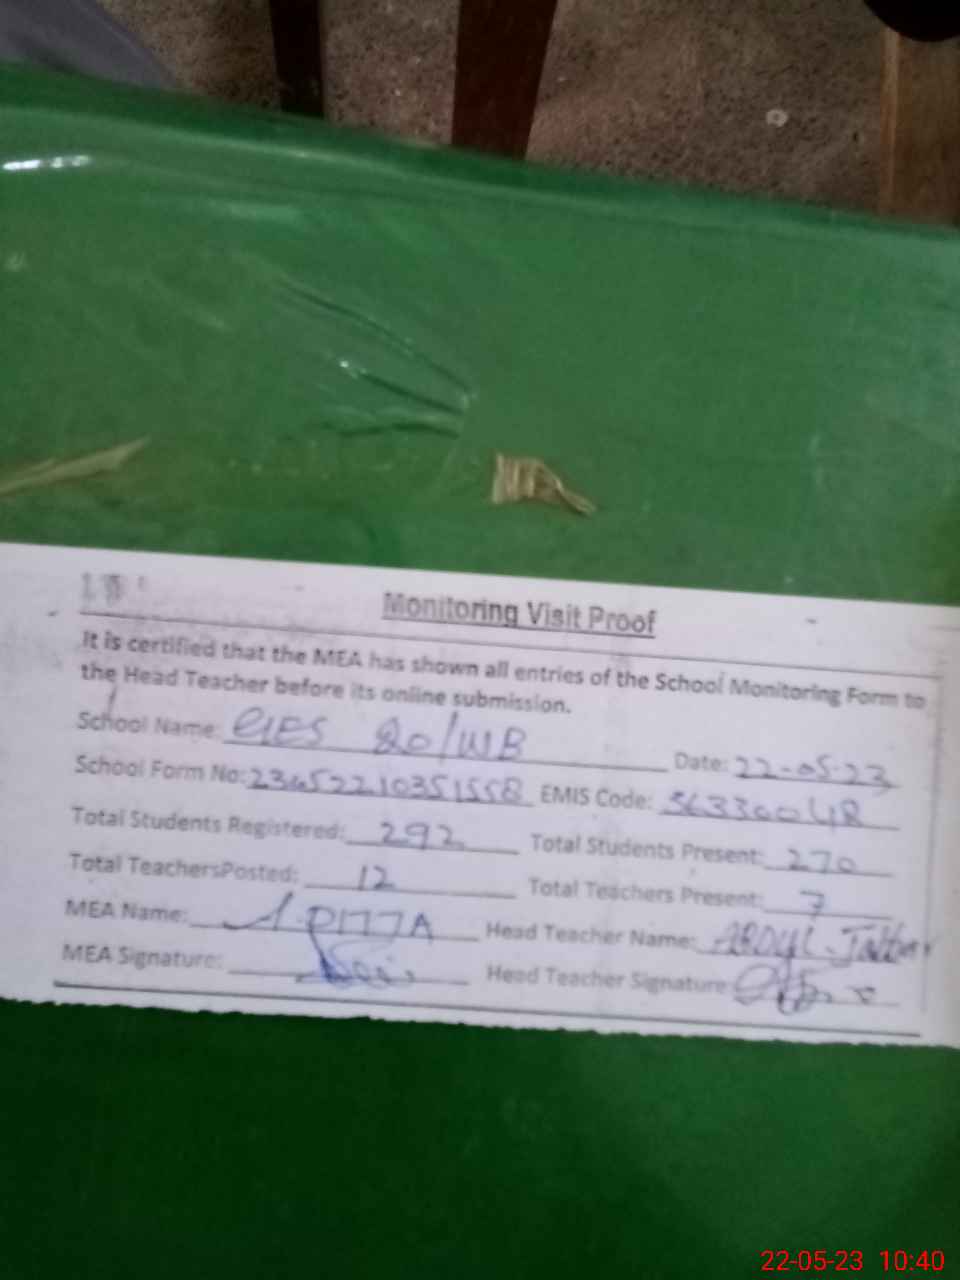 Monitoring Visit Proof
It is certified that the MEA has shown all entries of the School Monitoring Form to
the Head Teacher before its online submission.
School Name: GES 20/WB Date: 22-05-23
School Form No: EMIS Code:
Total Students Registered: 292 Total Students Present: 270
Total TeachersPosted: 12 Total Teachers Present: 7
MEA Name: A.DITTA Head Teacher Name: ABDUL
MEA Signature: Head Teacher Signature
22-05-23 10:40